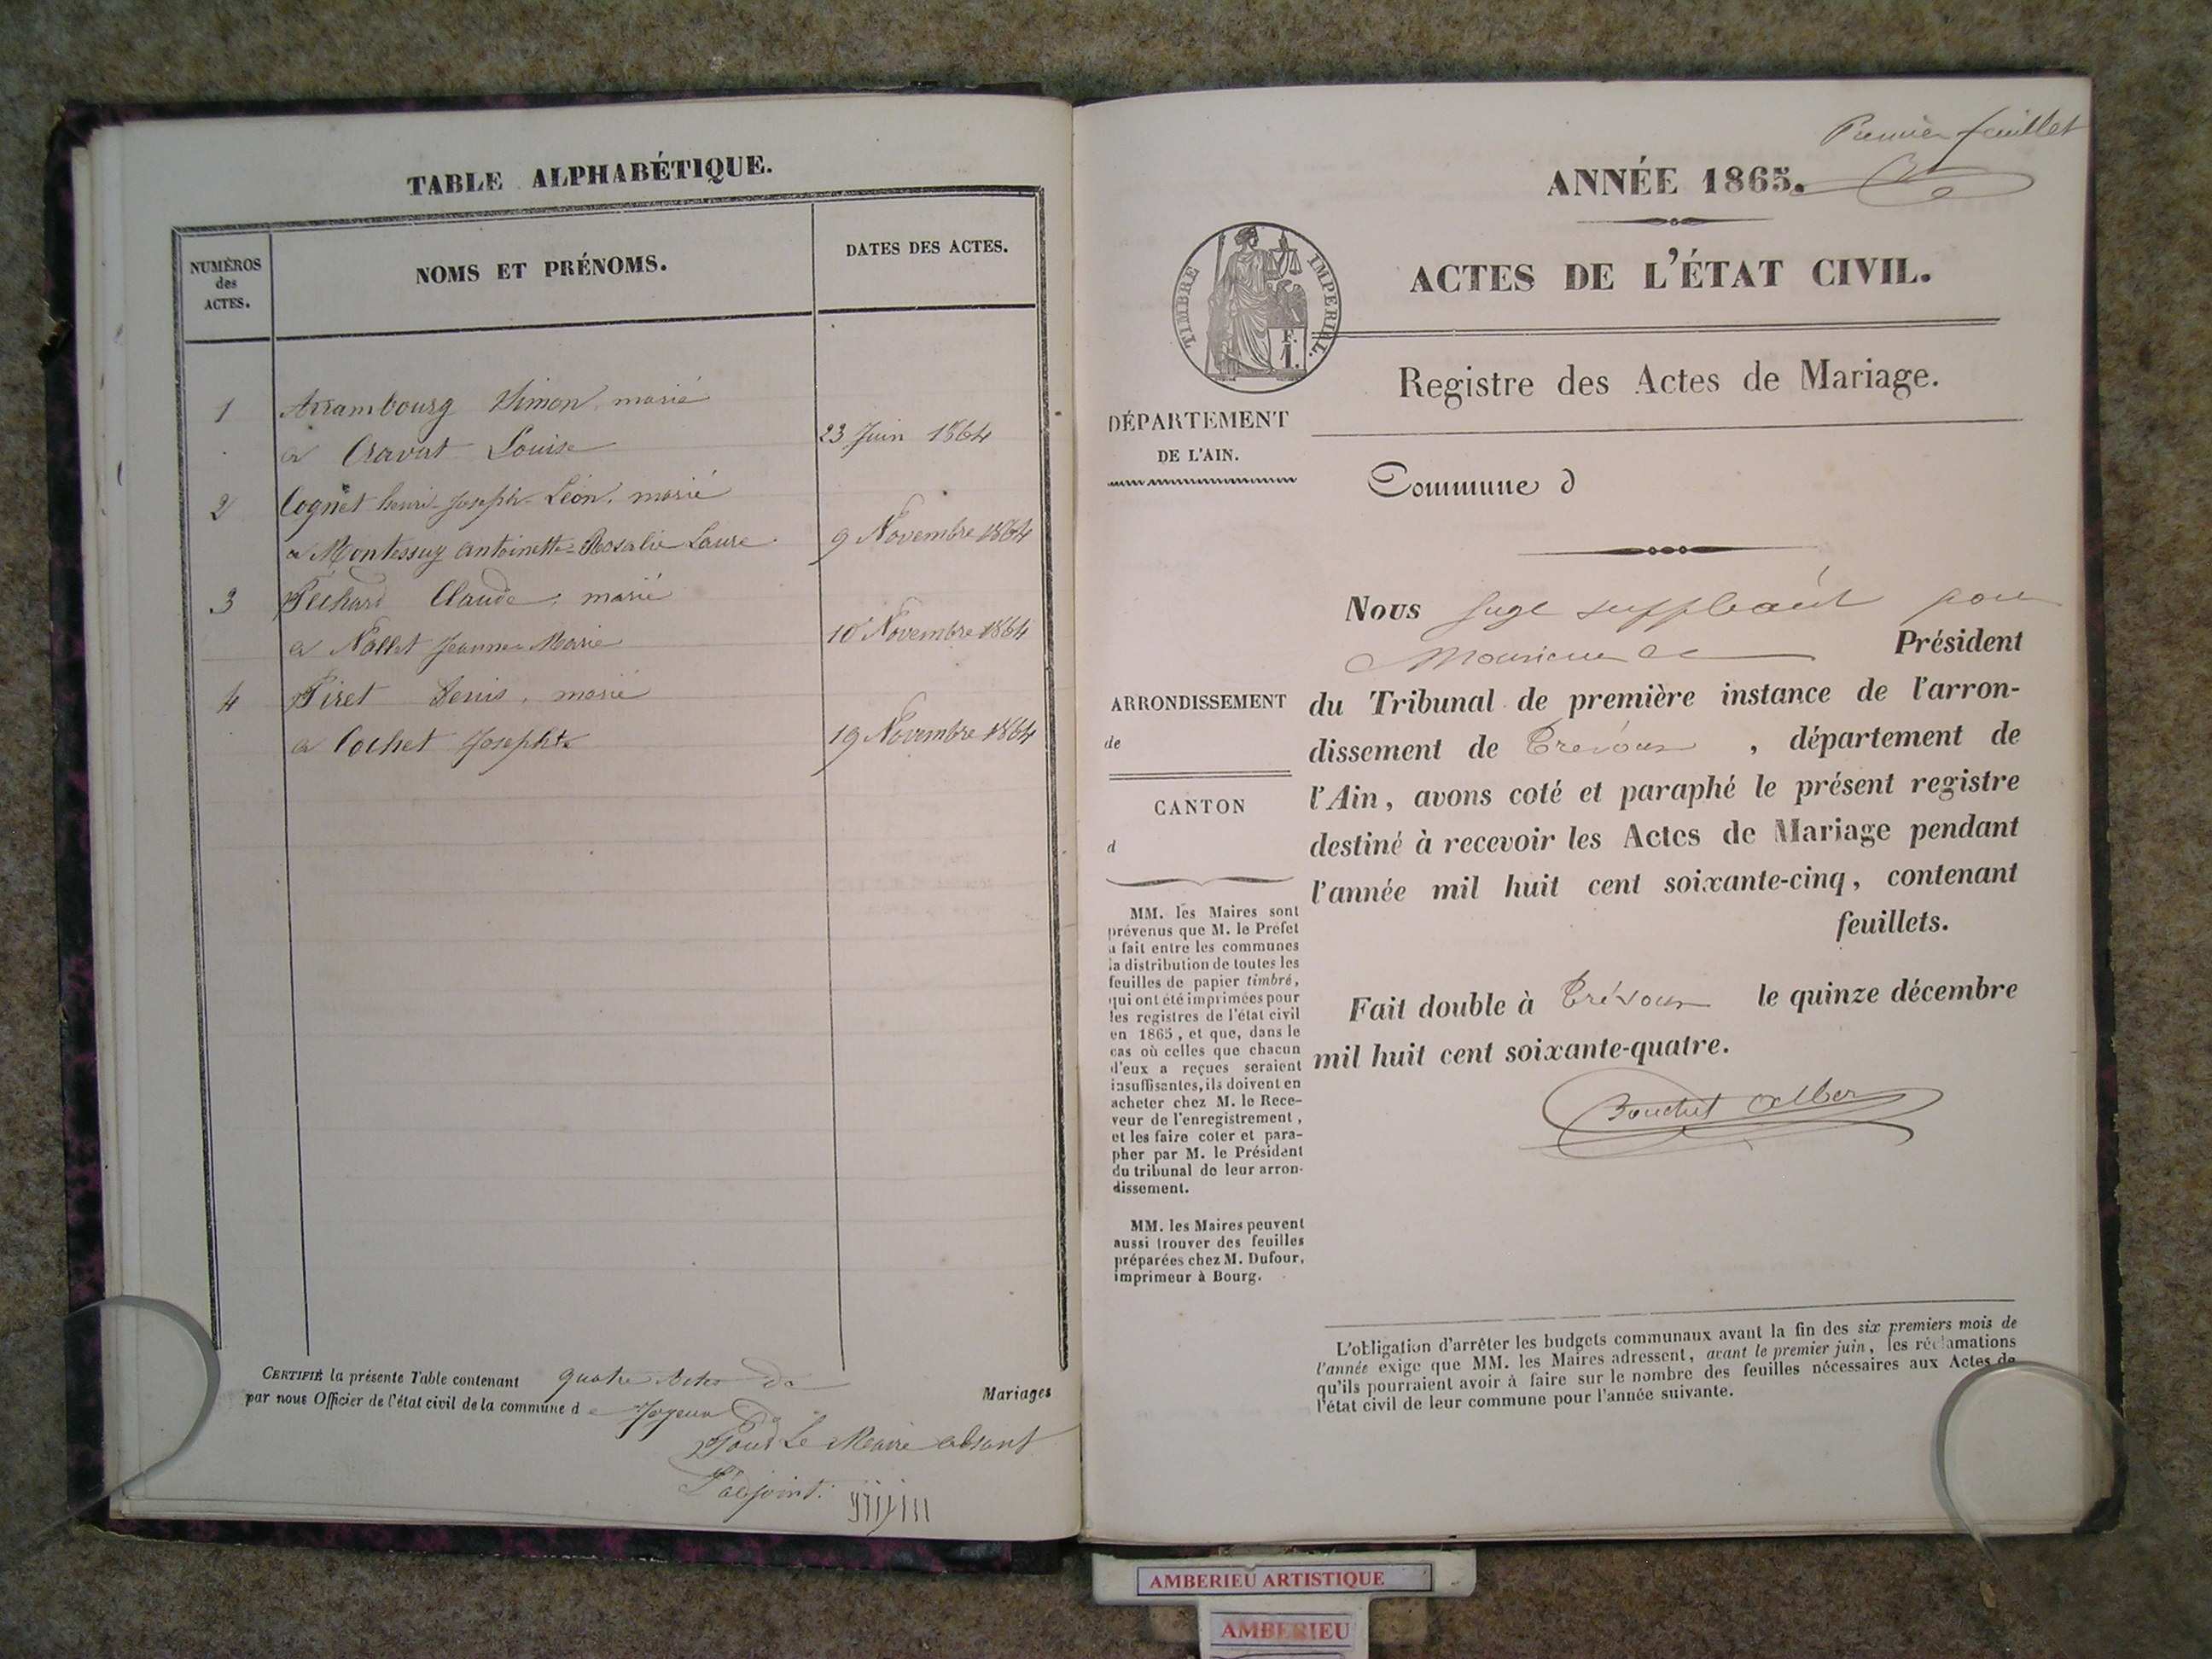 TABLE ALPHABÉTIQUE.
NUMÉROS
des
ACTES.
NOMS ET PRÉNOMS.
DATES DES ACTES.
1 Arrambourg Simon, marié
a Cravat Louise 23 Juin 1864
2 Cognet henri-Joseph-Léon, marié
a Montessuy antoinette-Rosalie Laure 9 Novembre 1864
3 Péchard Claude, marié
a Nollet Jeanne Marie 10 Novembre 1864
4 Piret Denis, marié
a Cochet Josephte 19 Novembre 1864
CERTIFIÉ la présente Table contenant quatre Actes de Mariages
par nous Officier de l'état civil de la commune de Joyeux
Pour Le Maire absant
L'adjoint.
Premier feuillet
ANNÉE 1865.
ACTES DE L'ÉTAT CIVIL.
TIMBRE IMPERIAL.
F.
1.
Registre des Actes de Mariage.
DÉPARTEMENT
DE L'AIN.
Commune d
Nous Juge suppléant pour
Monsieur le Président
du Tribunal de première instance de l'arron-
dissement de Trévoux, département de
l'Ain, avons coté et paraphé le présent registre
destiné à recevoir les Actes de Mariage pendant
l'année mil huit cent soixante-cinq, contenant
feuillets.
Fait double à Trévoux le quinze décembre
mil huit cent soixante-quatre.
ARRONDISSEMENT
de
CANTON
d
MM. les Maires sont
prévenus que M. le Préfet
a fait entre les communes
la distribution de toutes les
feuilles de papier timbré,
qui ont été imprimées pour
les registres de l'état civil
en 1865, et que, dans le
cas où celles que chacun
d'eux a reçues seraient
insuffisantes, ils doivent en
acheter chez M. le Rece-
veur de l'enregistrement,
et les faire coter et para-
pher par M. le Président
du tribunal de leur arron-
dissement.
MM. les Maires peuvent
aussi trouver des feuilles
préparées chez M. Dufour,
imprimeur à Bourg.
L'obligation d'arrêter les budgets communaux avant la fin des six premiers mois de
l'année exige que MM. les Maires adressent, avant le premier juin, les réclamations
qu'ils pourraient avoir à faire sur le nombre des feuilles nécessaires aux Actes de
l'état civil de leur commune pour l'année suivante.
AMBERIEU ARTISTIQUE
AMBERIEU